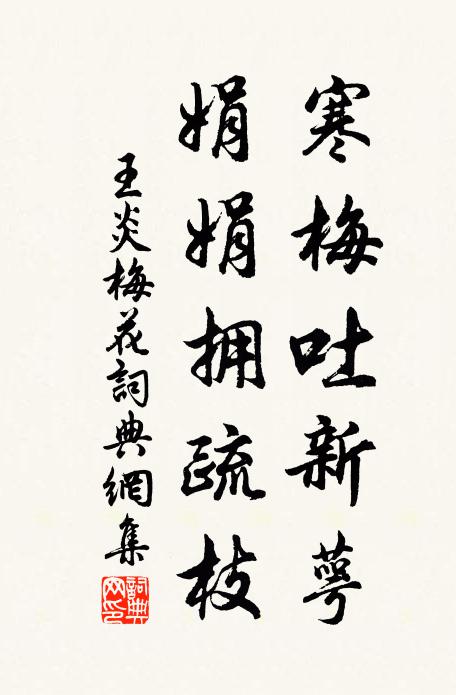 寒梅吐新萼
娟娟拥疏枝
王炎梅花詞典網集
詞典網印